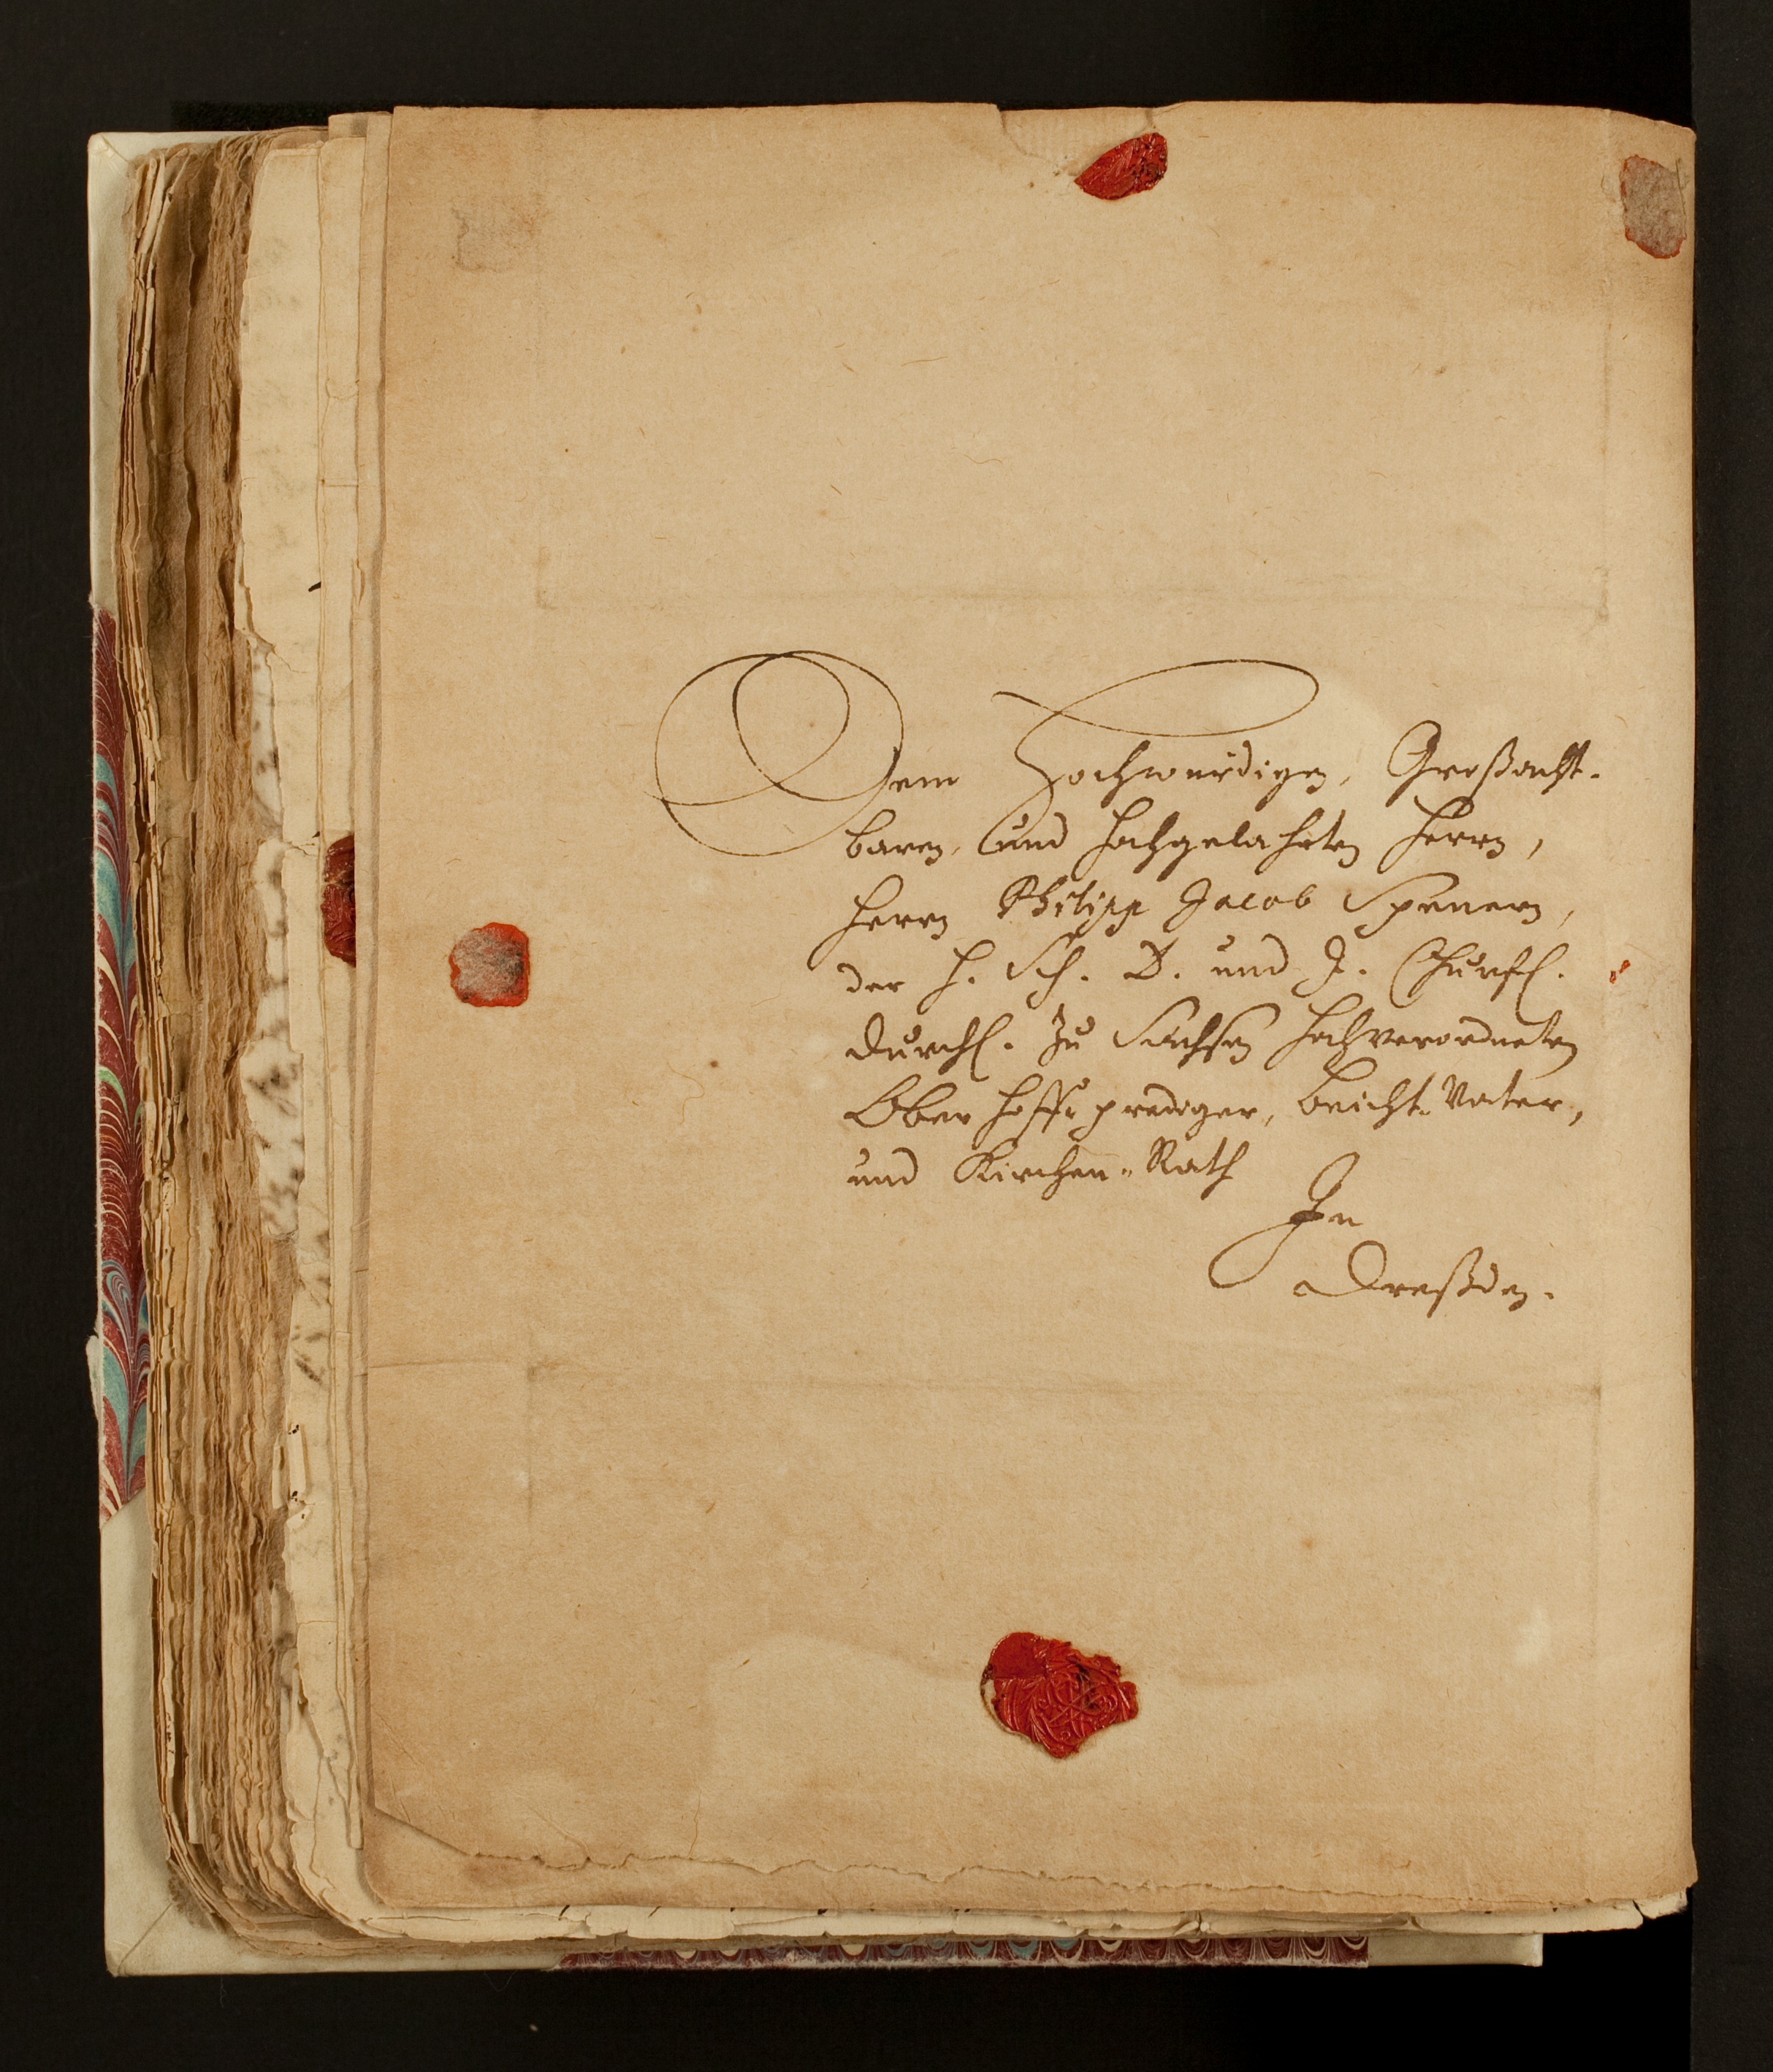 Dem Hochwürdigen, Großacht-
baren, und Hochgelahrten Herrn,
Herrn Philipp Jacob Spenern,
der H. Sch. D. und J. Churfl.
Durchl. zu Sachsen Hochverordneten
Ober Hoffprediger, Beicht-Vater,
und Kirchen-Rath
In
Dreßden.